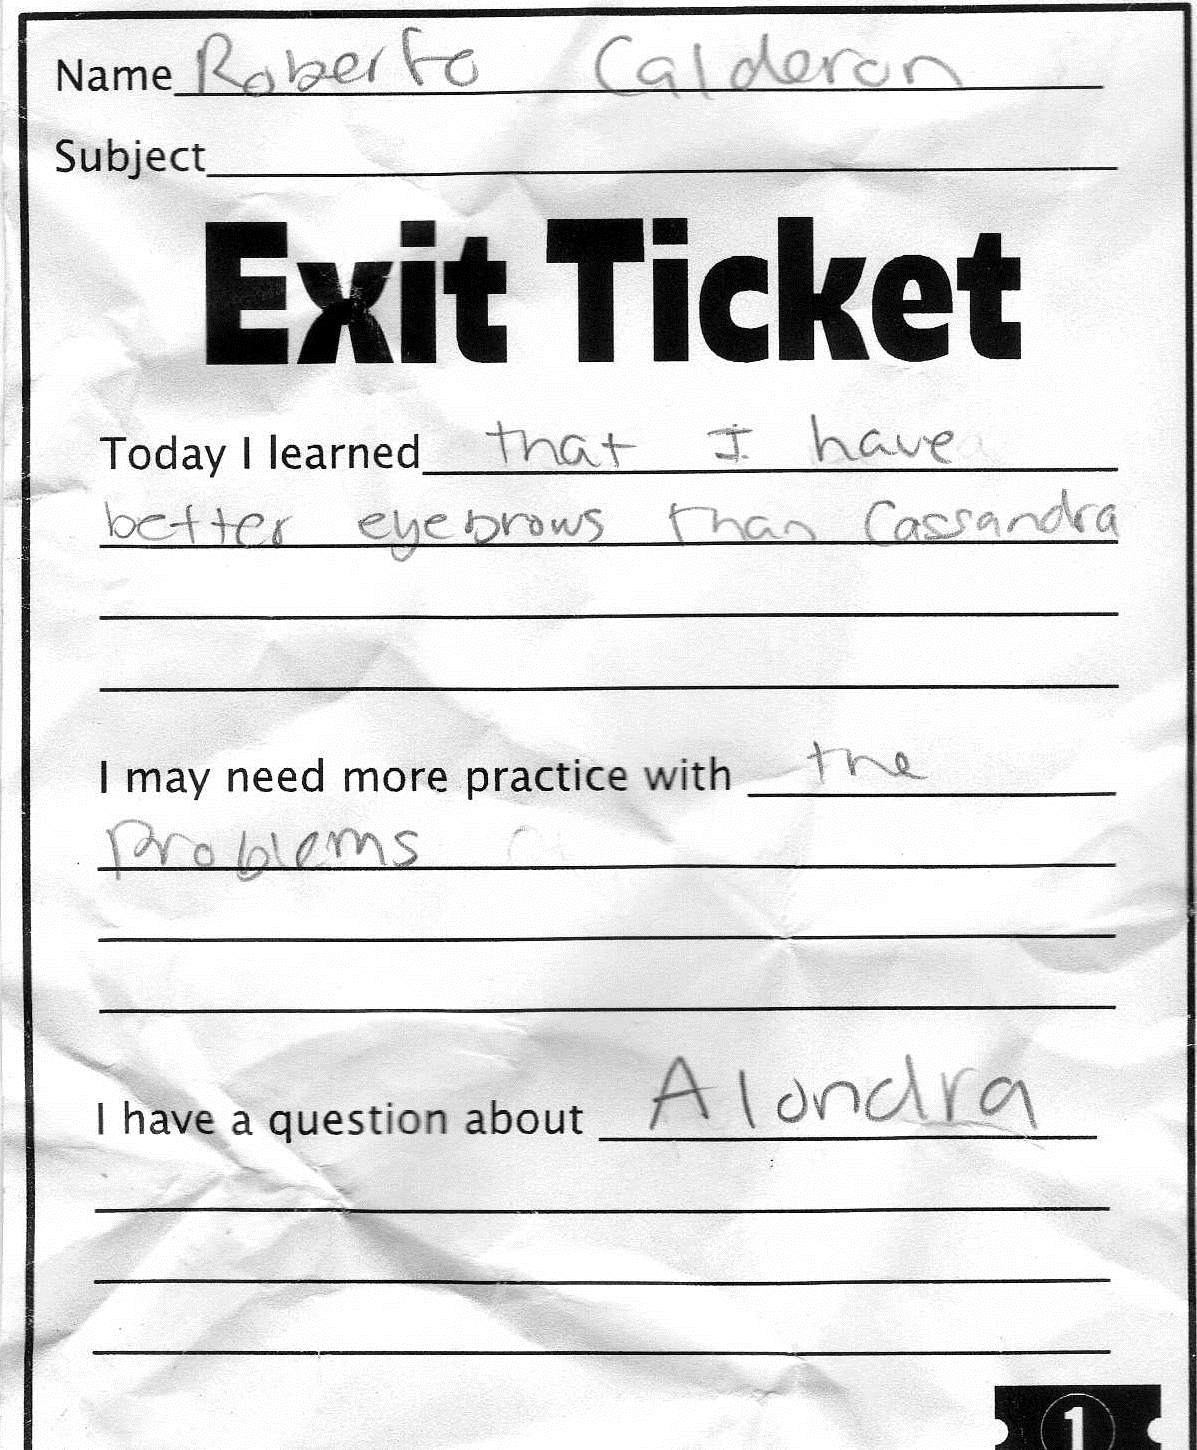 Name Roberto Calderon
Subject
Exit Ticket
Today I learned that I have
better eyebrows than Cassandra
I may need more practice with the
problems
I have a question about Alondra
1